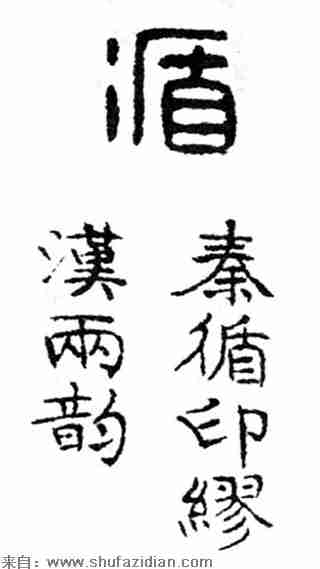 循
秦循印繆
漢兩韵
来自：www.shufazidian.com